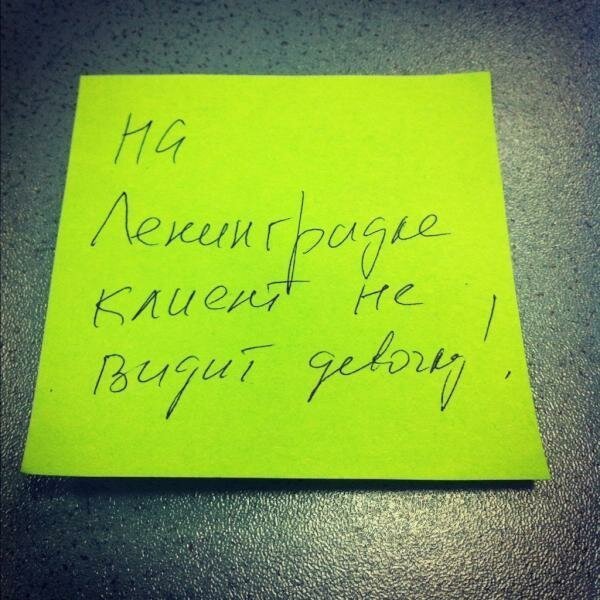 на
Ленинградке
клиент не
видит девочку!